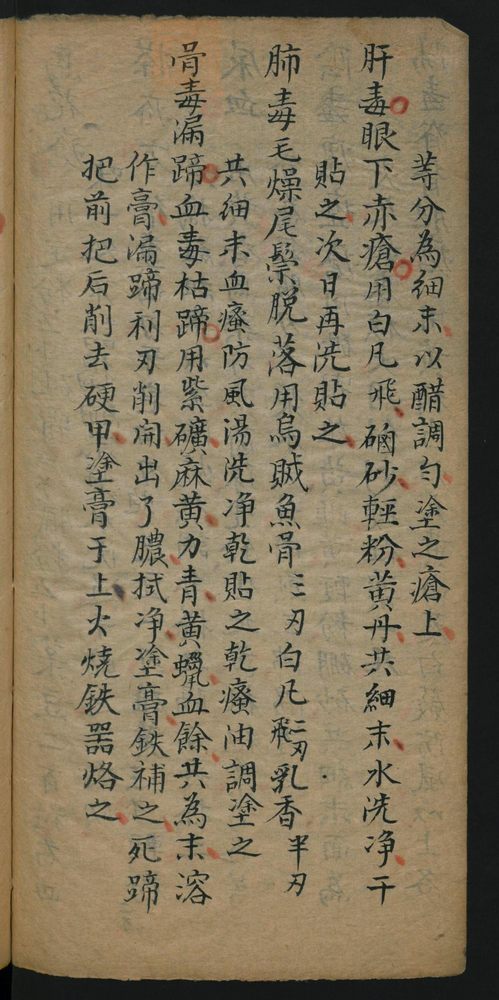 等分為細末以醋調勻塗之瘡上
肝毒眼下赤瘡用白凡飛硇砂輕粉黃丹共細末水洗净干
貼之次日再洗貼之
肺毒毛燥尾鬃脫落用烏賊魚骨三刃白凡飛二刃乳香半刃
共細末血瘙防風湯洗净乾貼之乾瘙油調塗之
骨毒漏蹄血毒枯蹄用紫礦麻黃力青黃蠟血餘共為末溶
作膏漏蹄利刃削開出了膿拭净塗膏鉄補之死蹄
把前把后削去硬甲塗膏于上火燒鉄器烙之